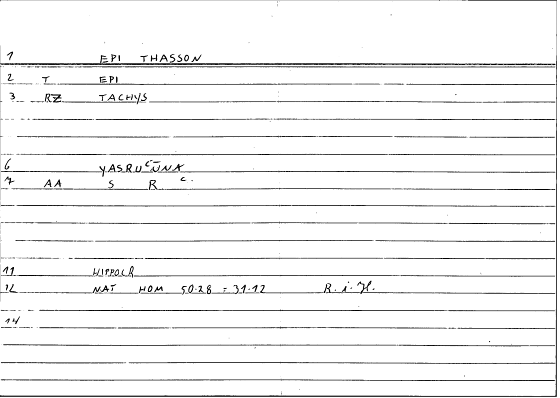 1 EPI THASSON
2 T EPI
3 RZ TACHYS
6 YASRUʿŪNNA
7 AA S R ʿ
11 HIPPOCR
12 NAT HOM 50.28 = 31.12 R. i. H.
14